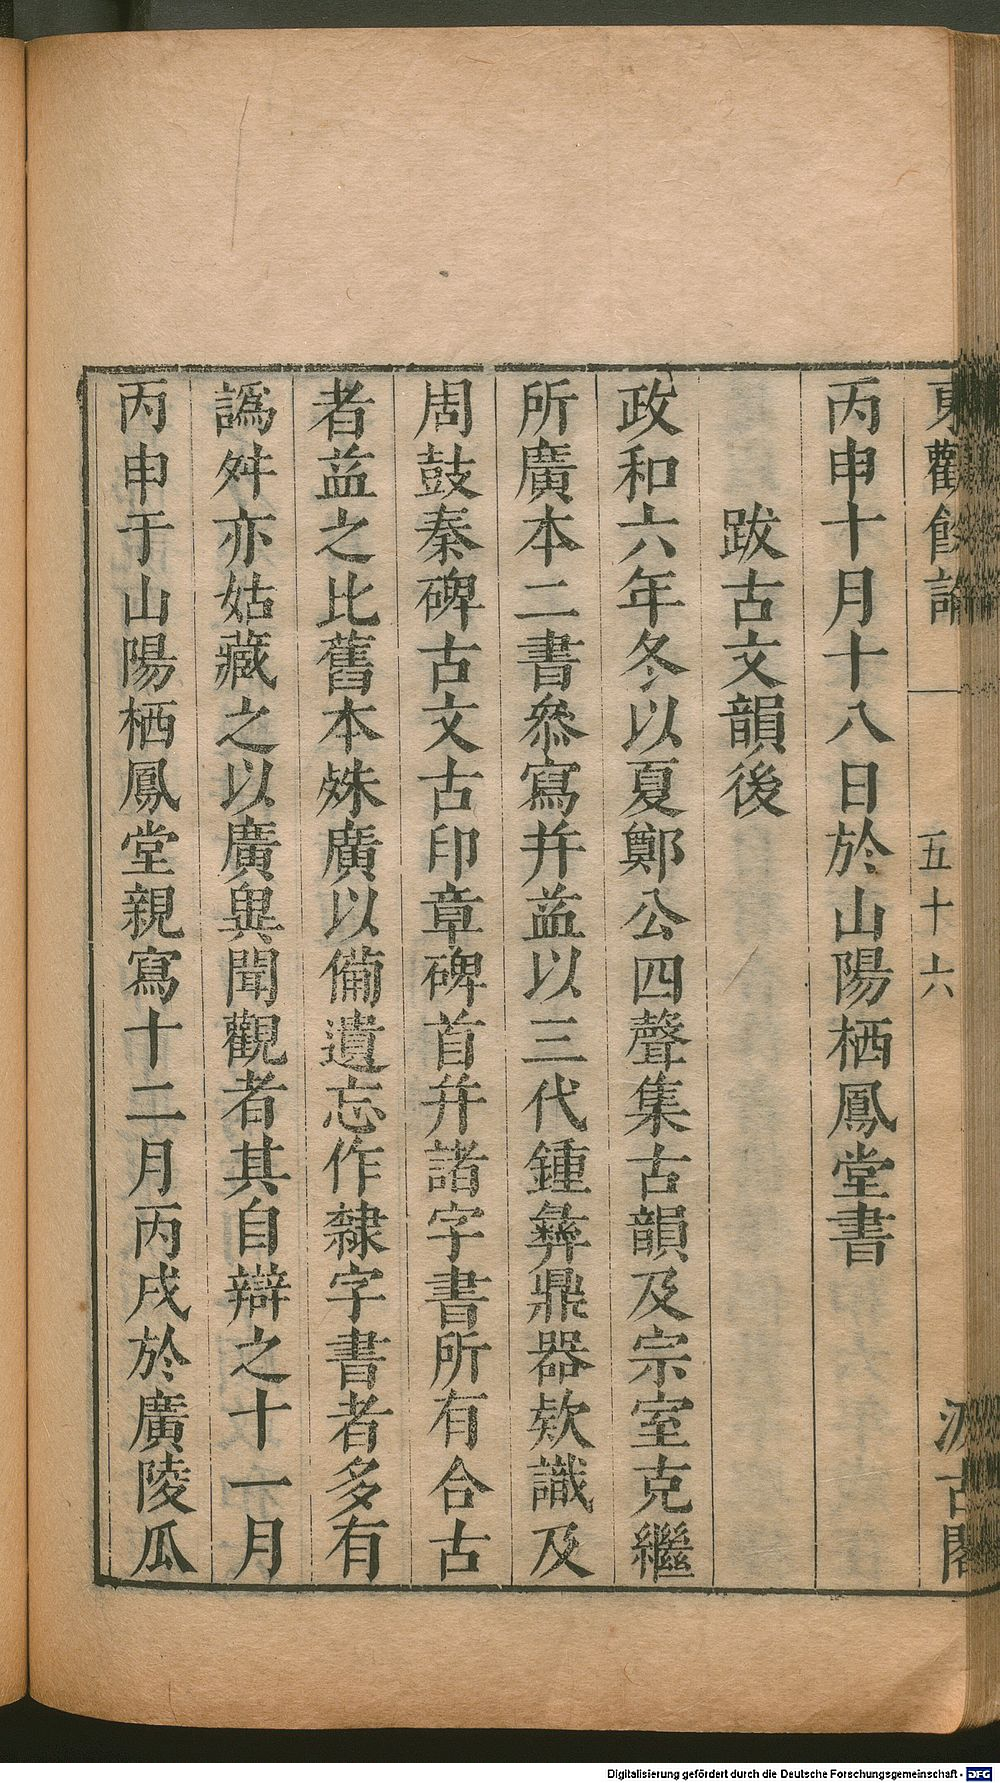 東觀餘論
五十六
汲古閣
丙申十月十八日於山陽栖鳳堂書
跋古文韻後
政和六年冬以夏鄭公四聲集古韻及宗室克繼
所廣本二書叅寫并益以三代鍾彝鼎器欵識及
周鼓秦碑古文古印章碑首并諸字書所有合古
者益之比舊本殊廣以備遺忘作隸字書者多有
譌舛亦姑藏之以廣異聞觀者其自辯之十一月
丙申于山陽栖鳳堂親寫十二月丙戌於廣陵瓜
Digitalisierung gefördert durch die Deutsche Forschungsgemeinschaft - DFG